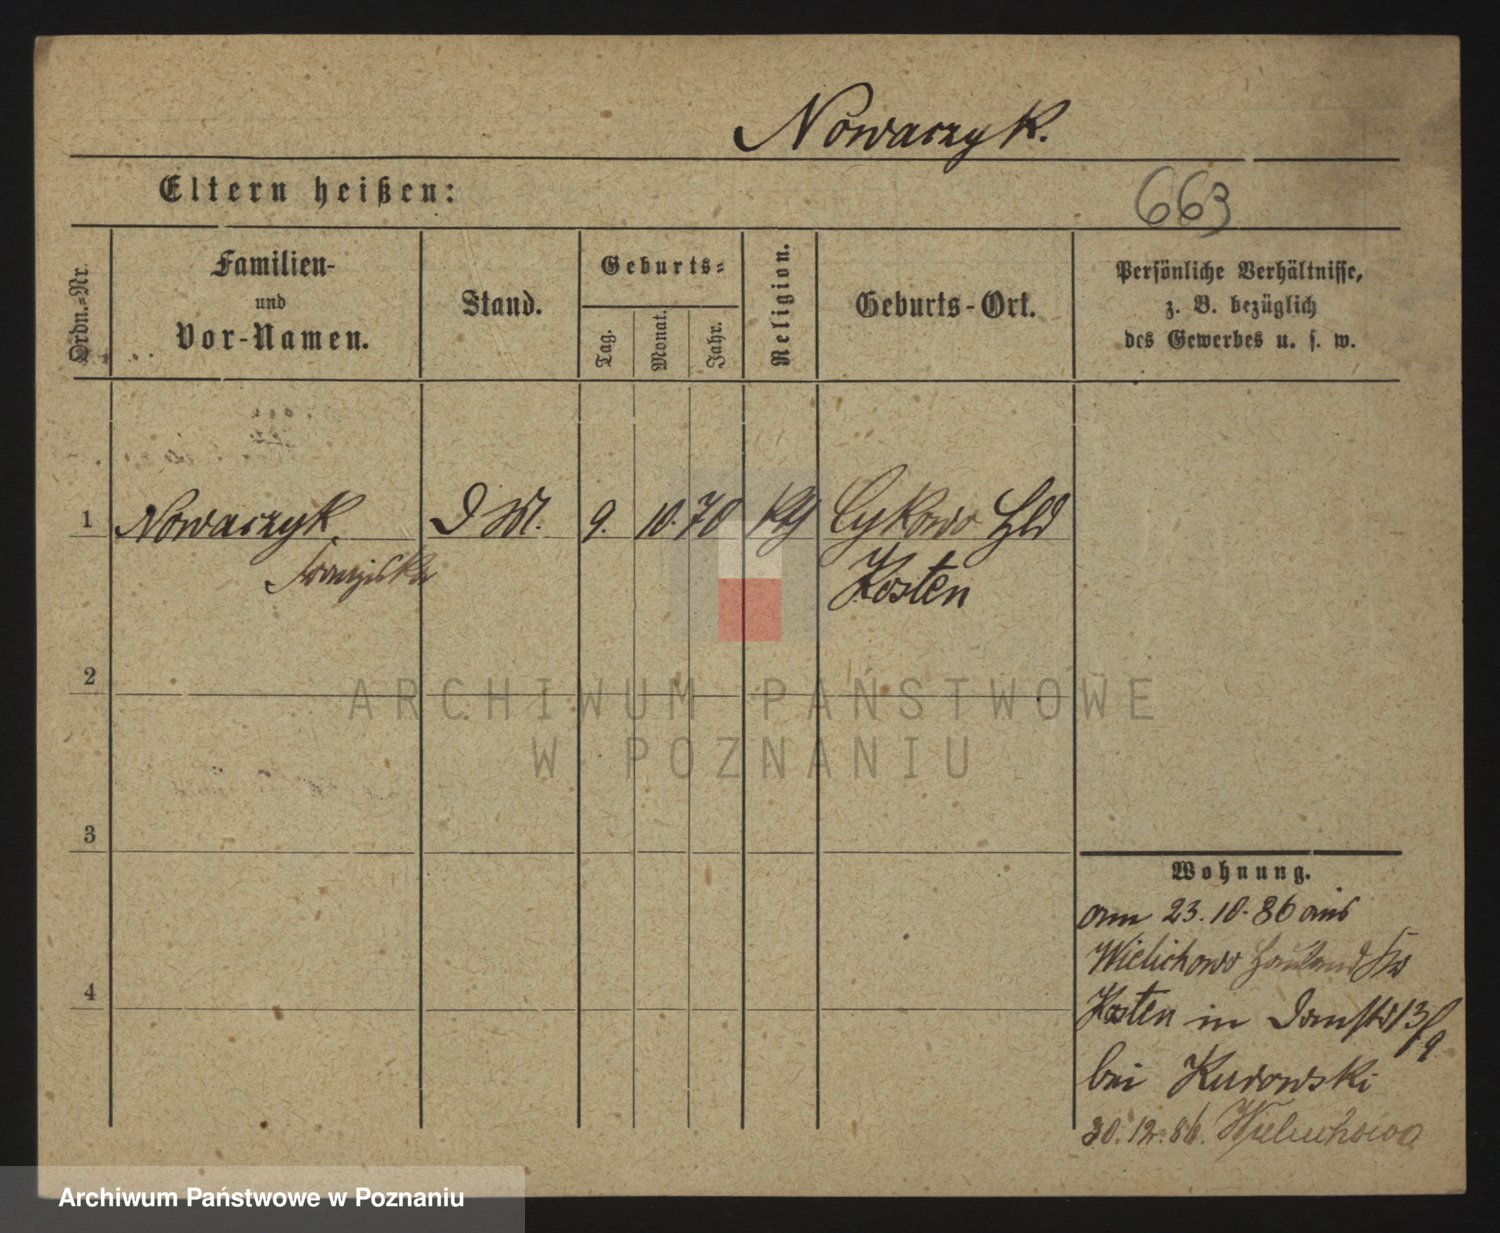 Nowaczyk.
Eltern heißen:
663
Ordn.-Nr.
Familien-
und
Vor-Namen.
Stand.
Geburts-
Tag.
Monat.
Jahr.
Religion.
Geburts-Ort.
Persönliche Verhältnisse,
z. B. bezüglich
des Gewerbes u. s. w.
1 Nowaczyk D M. 9. 10. 70 Cykowo Hld
Franziska Kosten
2
ARCHIWUM PAŃSTWOWE
W POZNANIU
3
Wohnung.
am 23. 10. 86 aus
Wielichowo Hauland Kr
4
Kosten in
bei Kurowski
30. 12. 86. Wielichowo
Archiwum Państwowe w Poznaniu